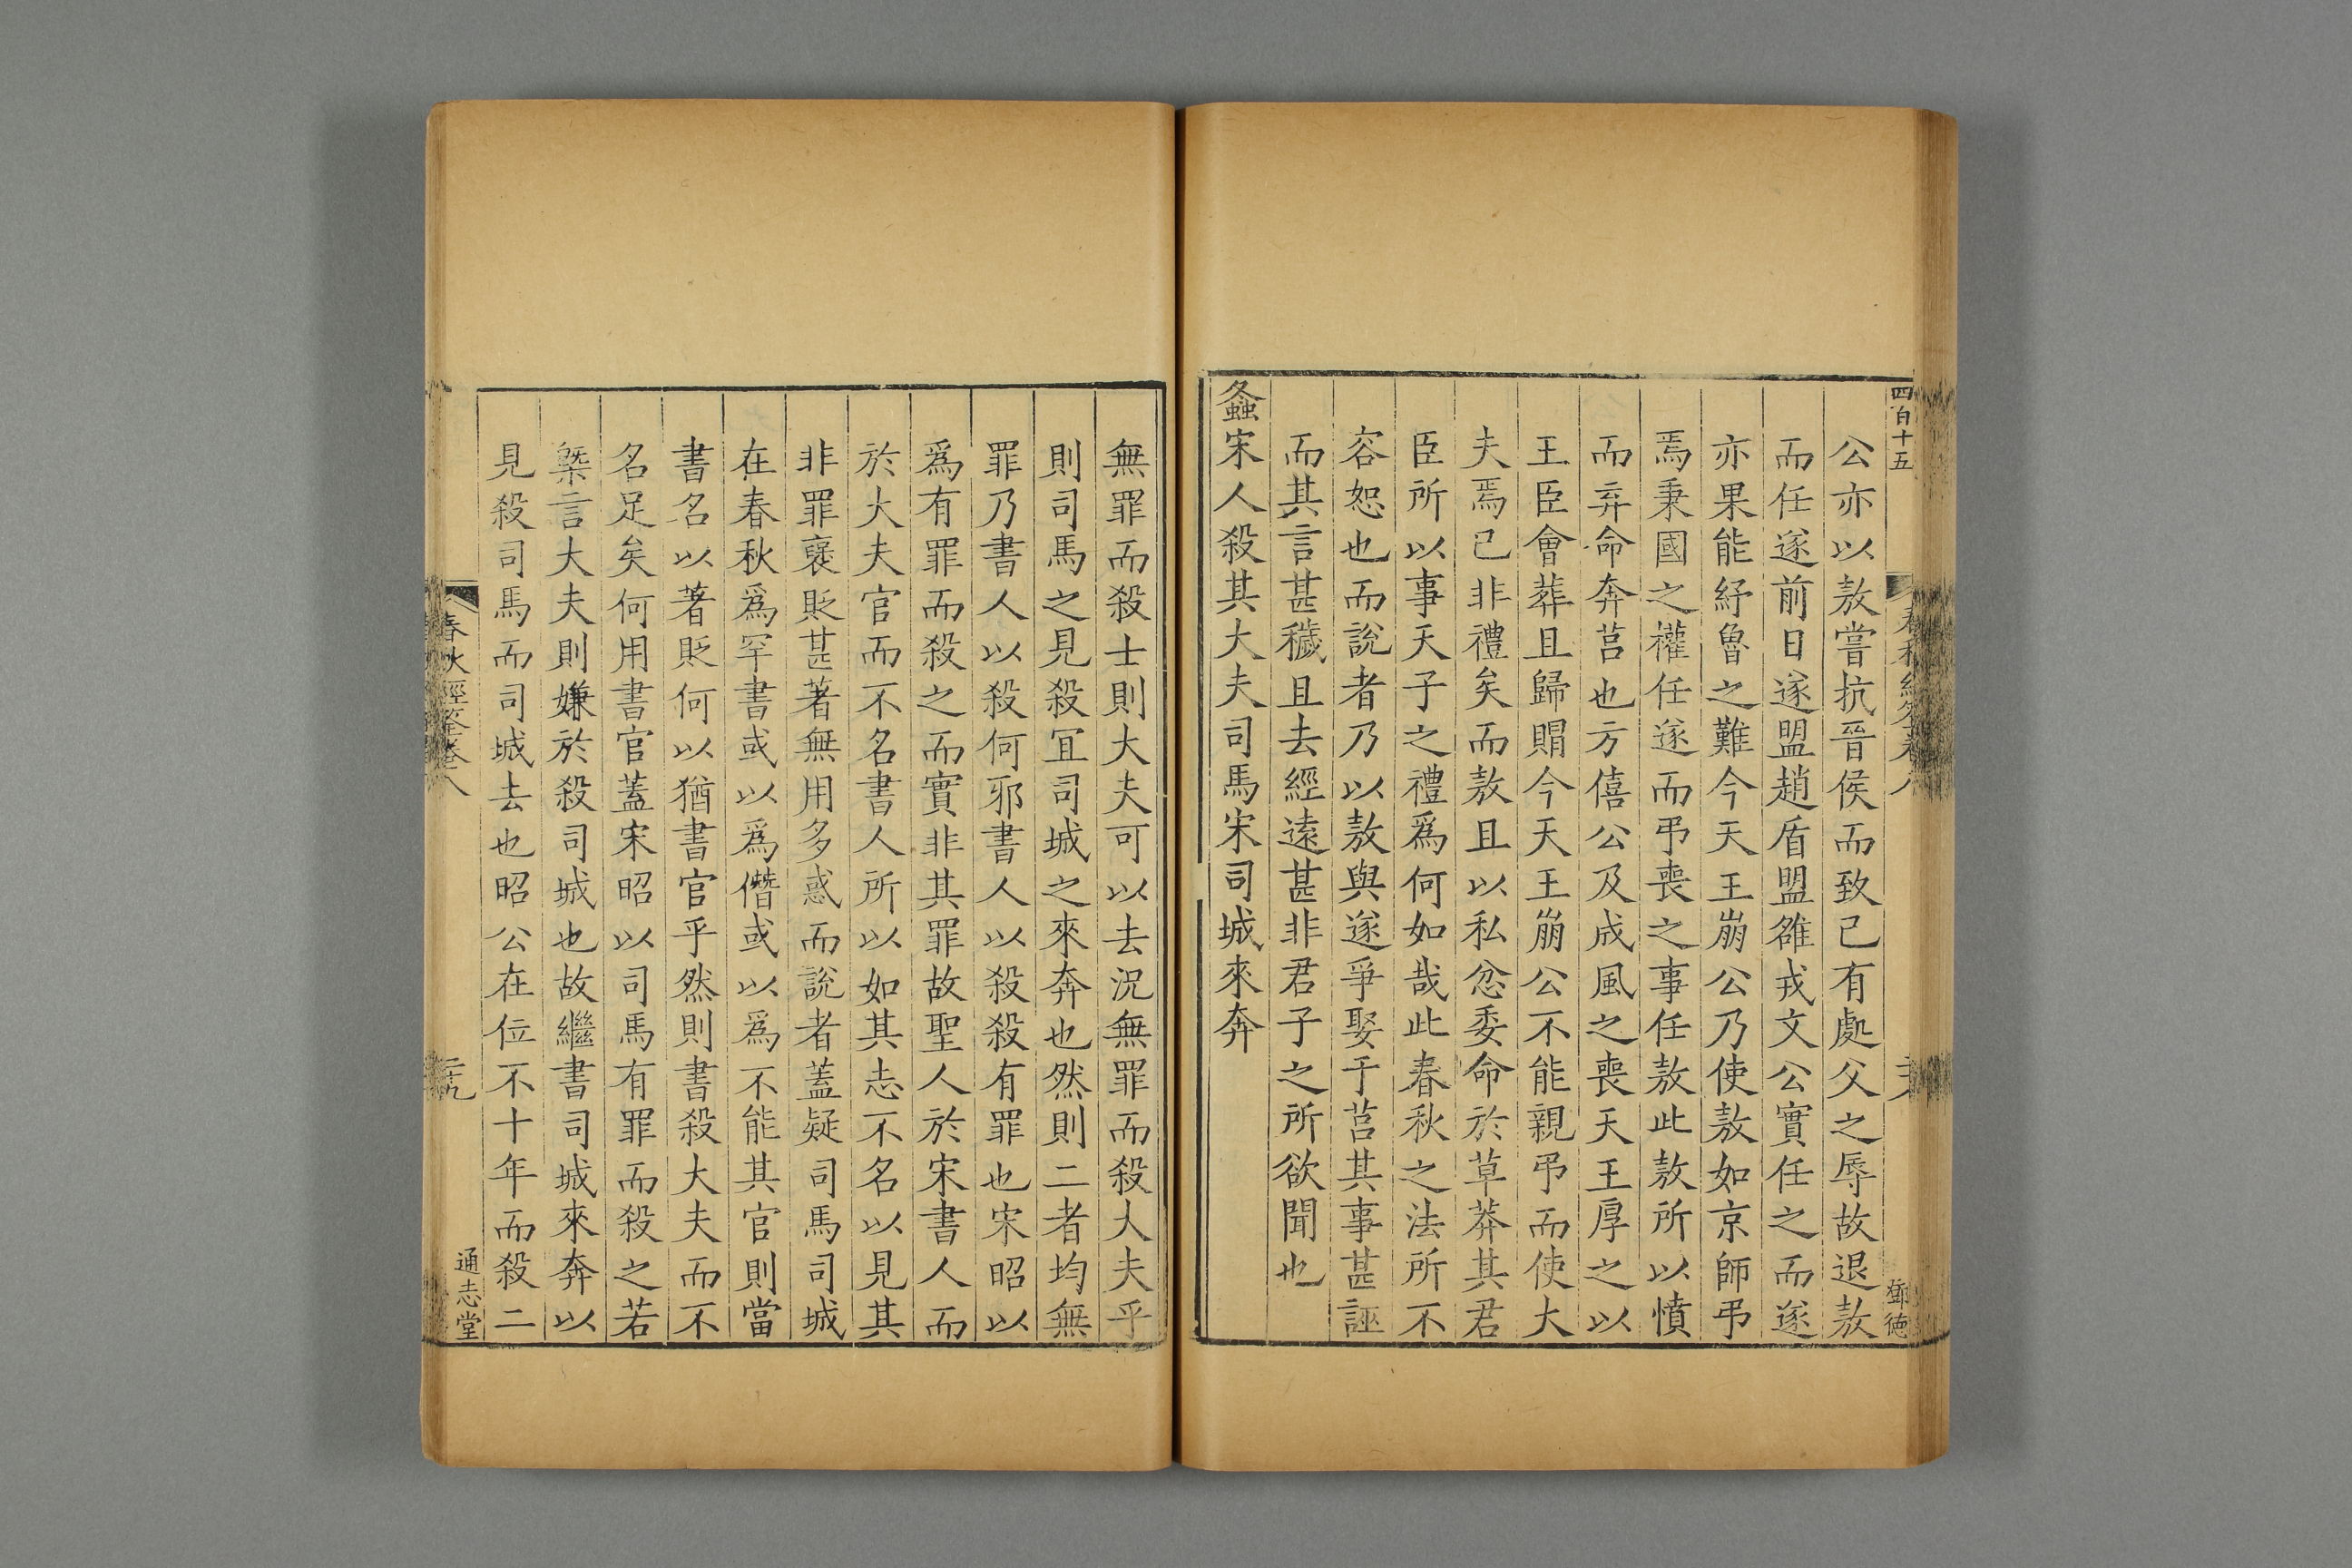 四百十五
鄧德
公亦以敖嘗抗晉侯而致已有處父之辱故退敖
而任遂前日遂盟趙盾盟雒戎文公實任之而遂
亦果能紓魯之難今天王崩公乃使敖如京師弔
焉秉國之權任遂而弔喪之事任敖此敖所以憤
而弃命奔莒也方僖公及成風之喪天王厚之以
王臣會葬且歸賵今天王崩公不能親弔而使大
夫焉已非禮矣而敖且以私忿委命於草莽其君
臣所以事天子之禮爲何如哉此春秋之法所不
容恕也而說者乃以敖與遂爭娶于莒其事甚誣
而其言甚穢且去經遠甚非君子之所欲聞也
螽宋人殺其大夫司馬宋司城來奔
無罪而殺士則大夫可以去況無罪而殺大夫乎
則司馬之見殺宜司城之來奔也然則二者均無
罪乃書人以殺何邪書人以殺殺有罪也宋昭以
爲有罪而殺之而實非其罪故聖人於宋書人而
於大夫官而不名書人所以如其志不名以見其
非罪襃貶甚著無用多惑而說者蓋疑司馬司城
在春秋爲罕書或以爲僭或以爲不能其官則當
書名以著貶何以猶書官乎然則書殺大夫而不
名足矣何用書官蓋宋昭以司馬有罪而殺之若
槩言大夫則嫌於殺司城也故繼書司城來奔以
見殺司馬而司城去也昭公在位不十年而殺二
春秋經筌卷八
二十九
通志堂